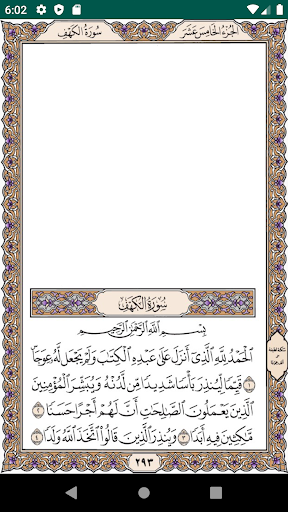 6:02
سُورَةُ الكَهْفِ
الجُزْءُ الخَامِسَ عَشَرَ
سُورَةُ الكَهْفِ
بِسْمِ اللَّهِ الرَّحْمَٰنِ الرَّحِيمِ
الْحَمْدُ لِلَّهِ الَّذِي أَنزَلَ عَلَىٰ عَبْدِهِ الْكِتَابَ وَلَمْ يَجْعَل لَّهُ عِوَجًا
١ قَيِّمًا لِّيُنذِرَ بَأْسًا شَدِيدًا مِّن لَّدُنْهُ وَيُبَشِّرَ الْمُؤْمِنِينَ
الَّذِينَ يَعْمَلُونَ الصَّالِحَاتِ أَنَّ لَهُمْ أَجْرًا حَسَنًا ٢
مَّاكِثِينَ فِيهِ أَبَدًا ٣ وَيُنذِرَ الَّذِينَ قَالُوا اتَّخَذَ اللَّهُ وَلَدًا ٤
٢٩٣